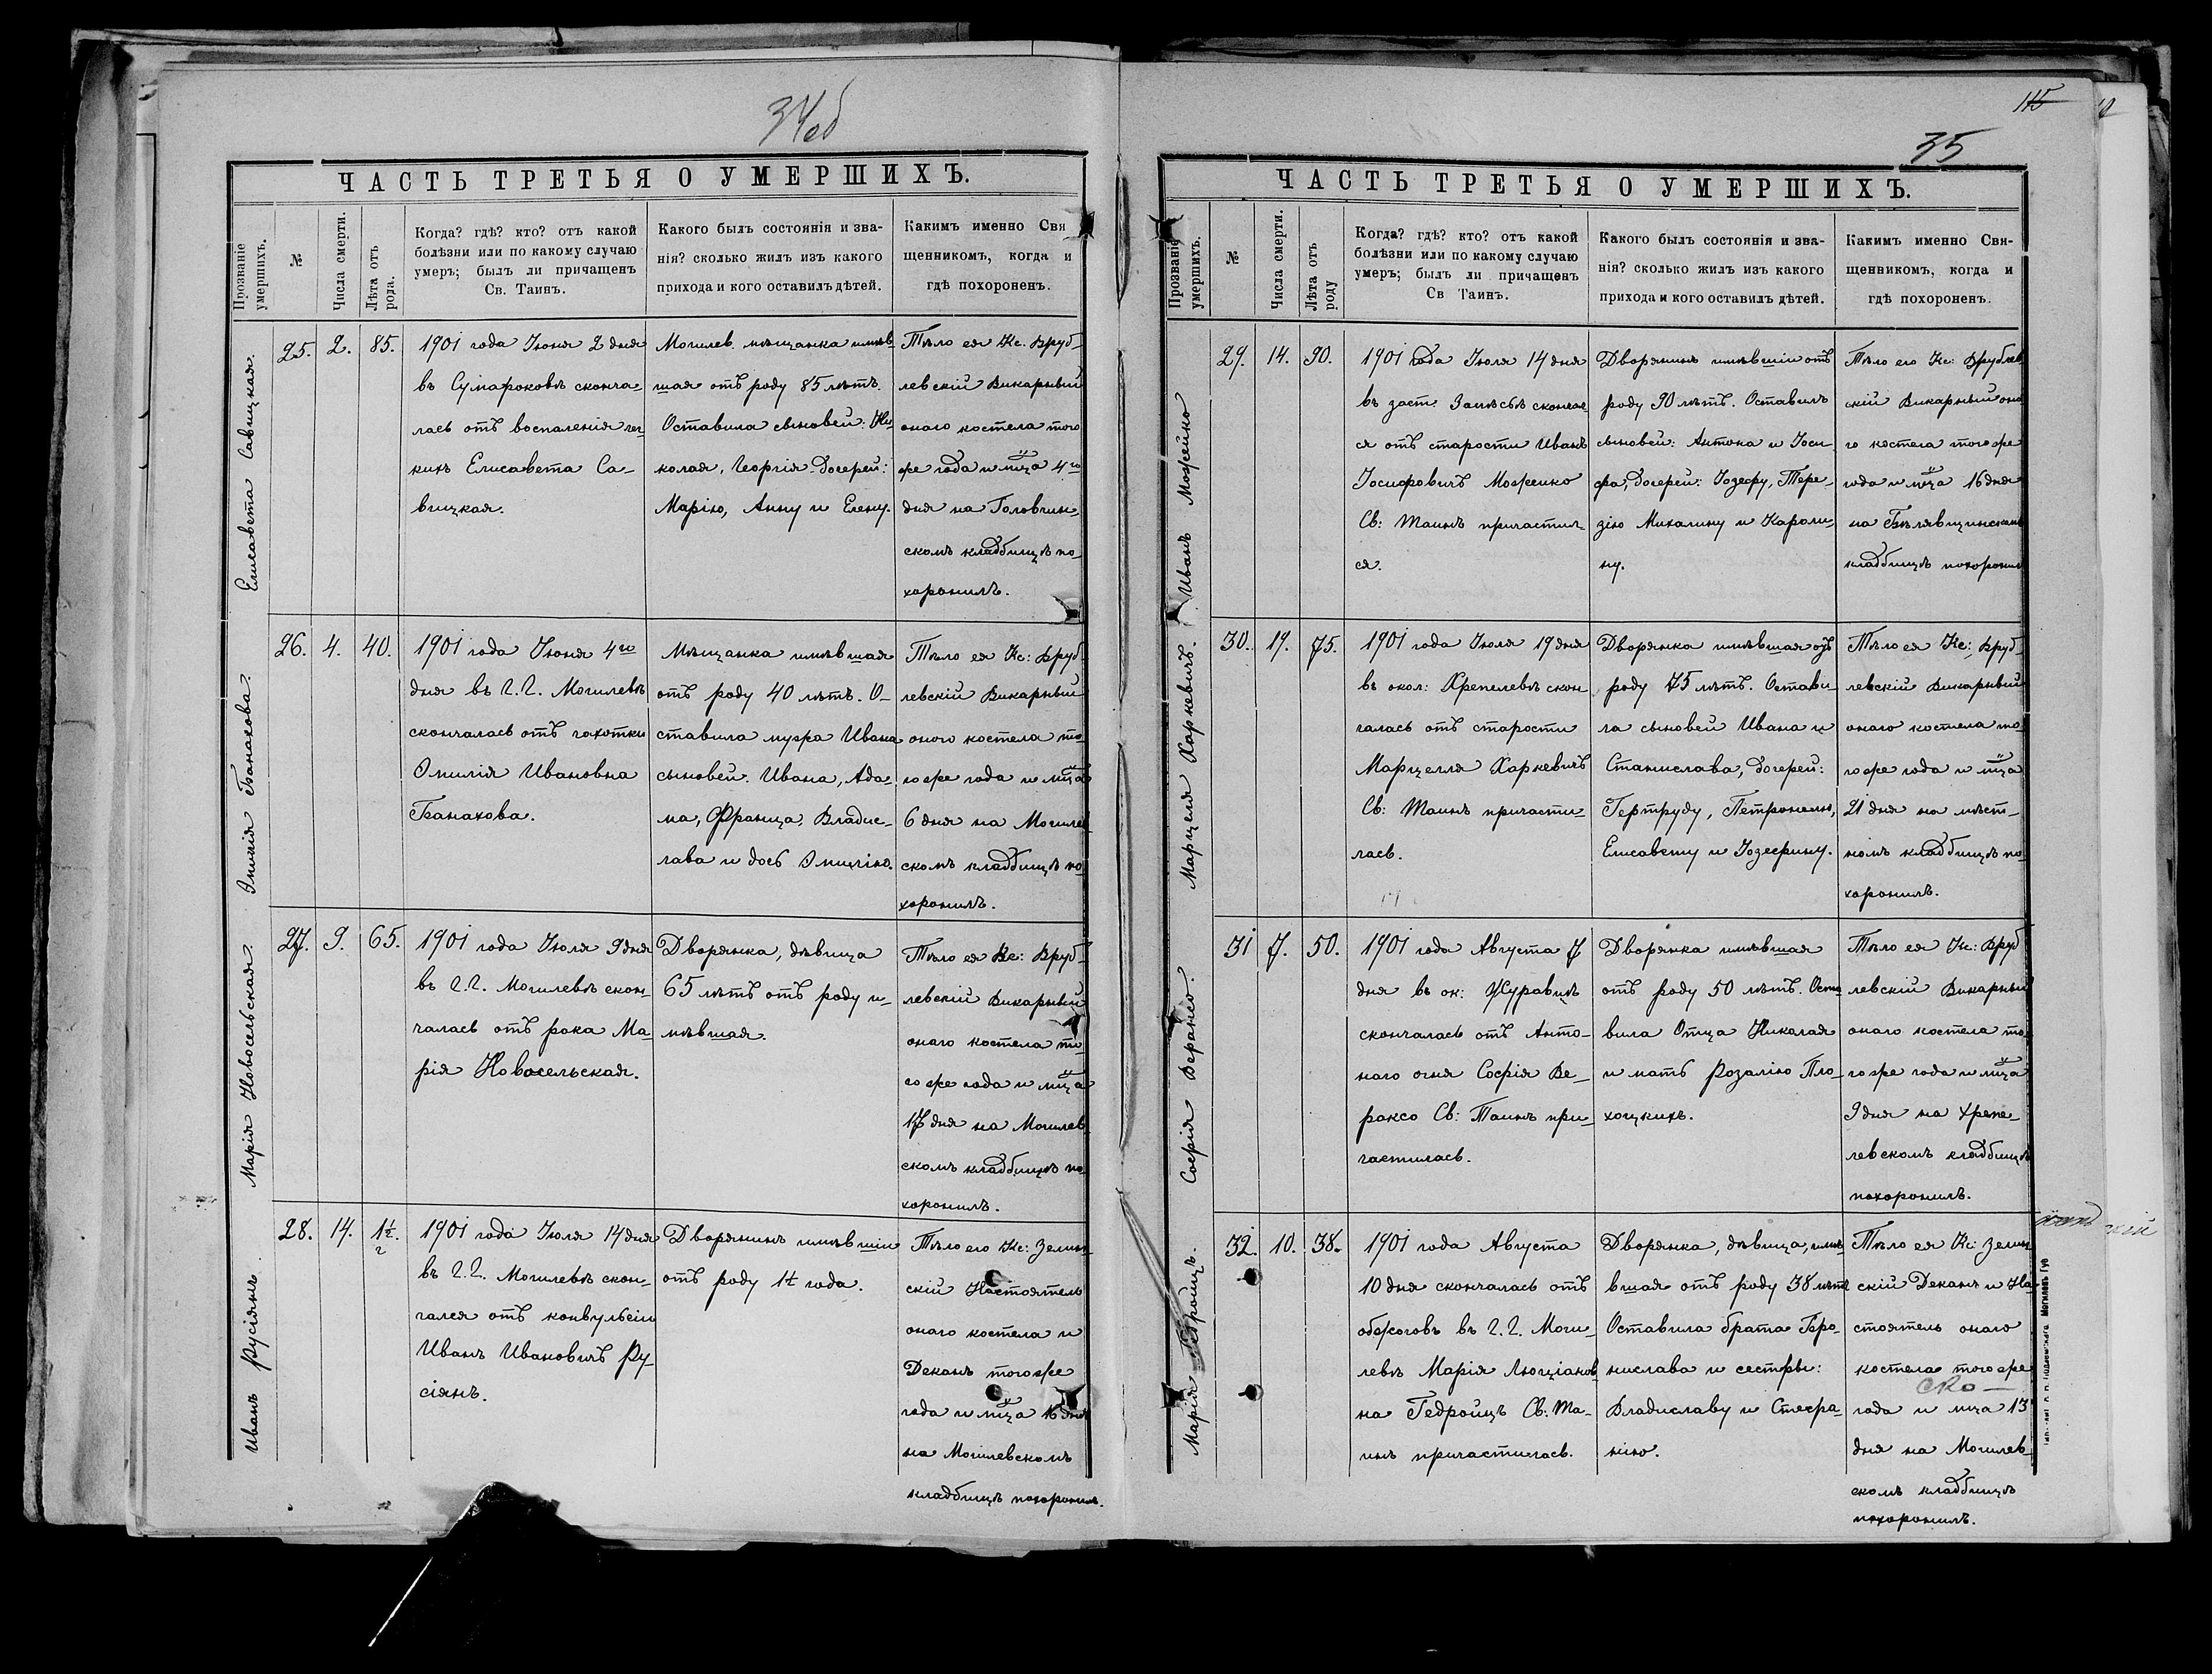 34об
ЧАСТЬ ТРЕТЬЯ О УМЕРШИХЪ.
Прозваніе умершихъ.
№
Числа смерти.
Лѣта отъ рода.
Когда? гдѣ? кто? отъ какой
болѣзни или по какому случаю
умеръ; былъ ли причащенъ
Св. Таинъ.
Какого былъ состоянія и зва-
нія? сколько жилъ изъ какого
прихода и кого оставилъ дѣтей.
Какимъ именно Свя
щенникомъ, когда и
гдѣ похороненъ.
Елисавета Савицкая.
25.
2.
85.
1901 года Іюня 2 дня
въ Сумароковѣ сконча-
лась отъ воспаленія лег-
кихъ Елисавета Са-
вицкая.
Могилев. мѣщанка имѣв-
шая отъ роду 85 лѣтъ.
Оставила сыновей: Ни-
колая, Георгія. Дочерей:
Марію, Анну и Елену.
Тѣло ея Кс. Вруб-
левскій Викарный
онаго костела того
же года и мца 4го
дня на Головчин-
скомъ кладбищѣ по-
хоронилъ.
Эмилія Банахова.
26.
4.
40.
1901 года Іюня 4го
дня въ г.г. Могилевѣ
скончалась отъ чахотки
Эмилія Ивановна
Банахова.
Мѣщанка имѣвшая
отъ роду 40 лѣтъ. О-
ставила мужа Ивана
сыновей. Ивана, Ада-
ма, Франца, Владис-
лава и дочь Эмилію.
Тѣло ея Кс: Вруб-
левскій Викарный
оного костела то-
го же года и мца
6 дня на Могилев-
скомъ кладбищѣ по-
хоронилъ.
Марія Новосельская.
27.
9.
65.
1901 года Іюля 9 дня
въ г.г. Могилевѣ скон-
чалась отъ рака Ма-
рія Новосельская.
Дворянка, дѣвица
65 лѣтъ отъ роду и-
мѣвшая.
Тѣло ея Кс: Вруб-
левскій Викарный
онаго костела то-
го же года и мца
17 дня на Могилев-
скомъ кладбищѣ по-
хоронилъ.
Иванъ Русіянъ
28.
14.
1½.
1901 года Іюля 14 дня
въ г.г. Могилевѣ скон-
чался отъ конвульсіи
Иванъ Ивановичъ Ру-
сіянъ.
Дворянинъ имѣвшій
отъ роду 1½ года.
Тѣло его Кс: Зелин-
скій Настоятель
онаго костела и
Деканъ того же
года и мца 16 дня
на Могилевскомъ
кладбищѣ похоронилъ.
115
35
ЧАСТЬ ТРЕТЬЯ О УМЕРШИХЪ.
Прозваніе умершихъ.
№
Числа смерти.
Лѣта отъ роду
Когда? гдѣ? кто? отъ какой
болѣзни или по какому случаю
умеръ; былъ ли причащенъ
Св Таинъ.
Какого былъ состоянія и зва-
нія? сколько жилъ изъ какого
прихода и кого оставилъ дѣтей.
Какимъ именно Свя-
щенникомъ, когда и
гдѣ похороненъ.
Иванъ Можейко
29.
14.
90.
1901 года Іюля 14 дня
въ заст. сконча
ся отъ старости Иванъ
Іосифовичъ Можейко
Св: Таинъ причастил-
ся.
Дворянинъ имѣвшій отъ
роду 90 лѣтъ. Оставилъ
сыновей: Антона и Іоси-
фа, Дочерей: Іозефу, Тере-
зію Михалину и Кароли-
ну.
Тѣло его Кс: Врублев
скій Викарный она
го костела того же
года и мца 16 дня
на Бѣлявщинскомъ
кладбищѣ похоронилъ
Марцеля Харкевичъ.
30.
19.
75.
1901 года Іюля 19 дня
въ окол: Хрепелевѣ скон
чалась отъ старости
Марцелля Харкевичъ
Св: Таинъ причасти-
лась.
Дворянка имѣвшая отъ
роду 75 лѣтъ. Остави
ла сыновей Ивана и
Станислава, Дочерей:
Гертруду, Петронелю,
Елисавету и Іозефину.
Тѣло ея Кс: Вруб-
левскій Викарный
онаго костела то-
го же года и мца
21 дня на мѣст-
номъ кладбищѣ по-
хоронилъ.
Софія Вераксо.
31
7.
50.
1901 года Августа 7
дня въ ок: Журавцѣ
скончалась отъ Анто-
наго огня Софія Ве-
раксо Св: Таинъ при-
частилась.
Дворянка имѣвшая
отъ роду 50 лѣтъ. Оста
вила Отца Николая
и мать Розалію Пло-
хоцкихъ.
Тѣло ея Кс: Вруб
левскій Викарный
онаго костела то-
го же года и мца
9 дня на Хрепе-
левскомъ кладбищѣ
похоронилъ.
Марія Гедройцъ.
32.
10.
38.
1901 года Августа
10 дня скончалась отъ
обжоговъ въ г.г. Моги-
левѣ Марія Люціанов-
на Гедройцъ Св: Та-
инъ причастилась.
Дворянка, дѣвица, имѣ-
вшая отъ роду 38 лѣтъ
Оставила брата Бро-
нислава и сестры:
Владиславу и Стефа-
нію.
Тѣло ея Кс: Зелин
скій Деканъ и На-
стоятель онаго
костела того же
ско —
года и мца 13
дня на Могилев-
скомъ кладбищѣ
похоронилъ.